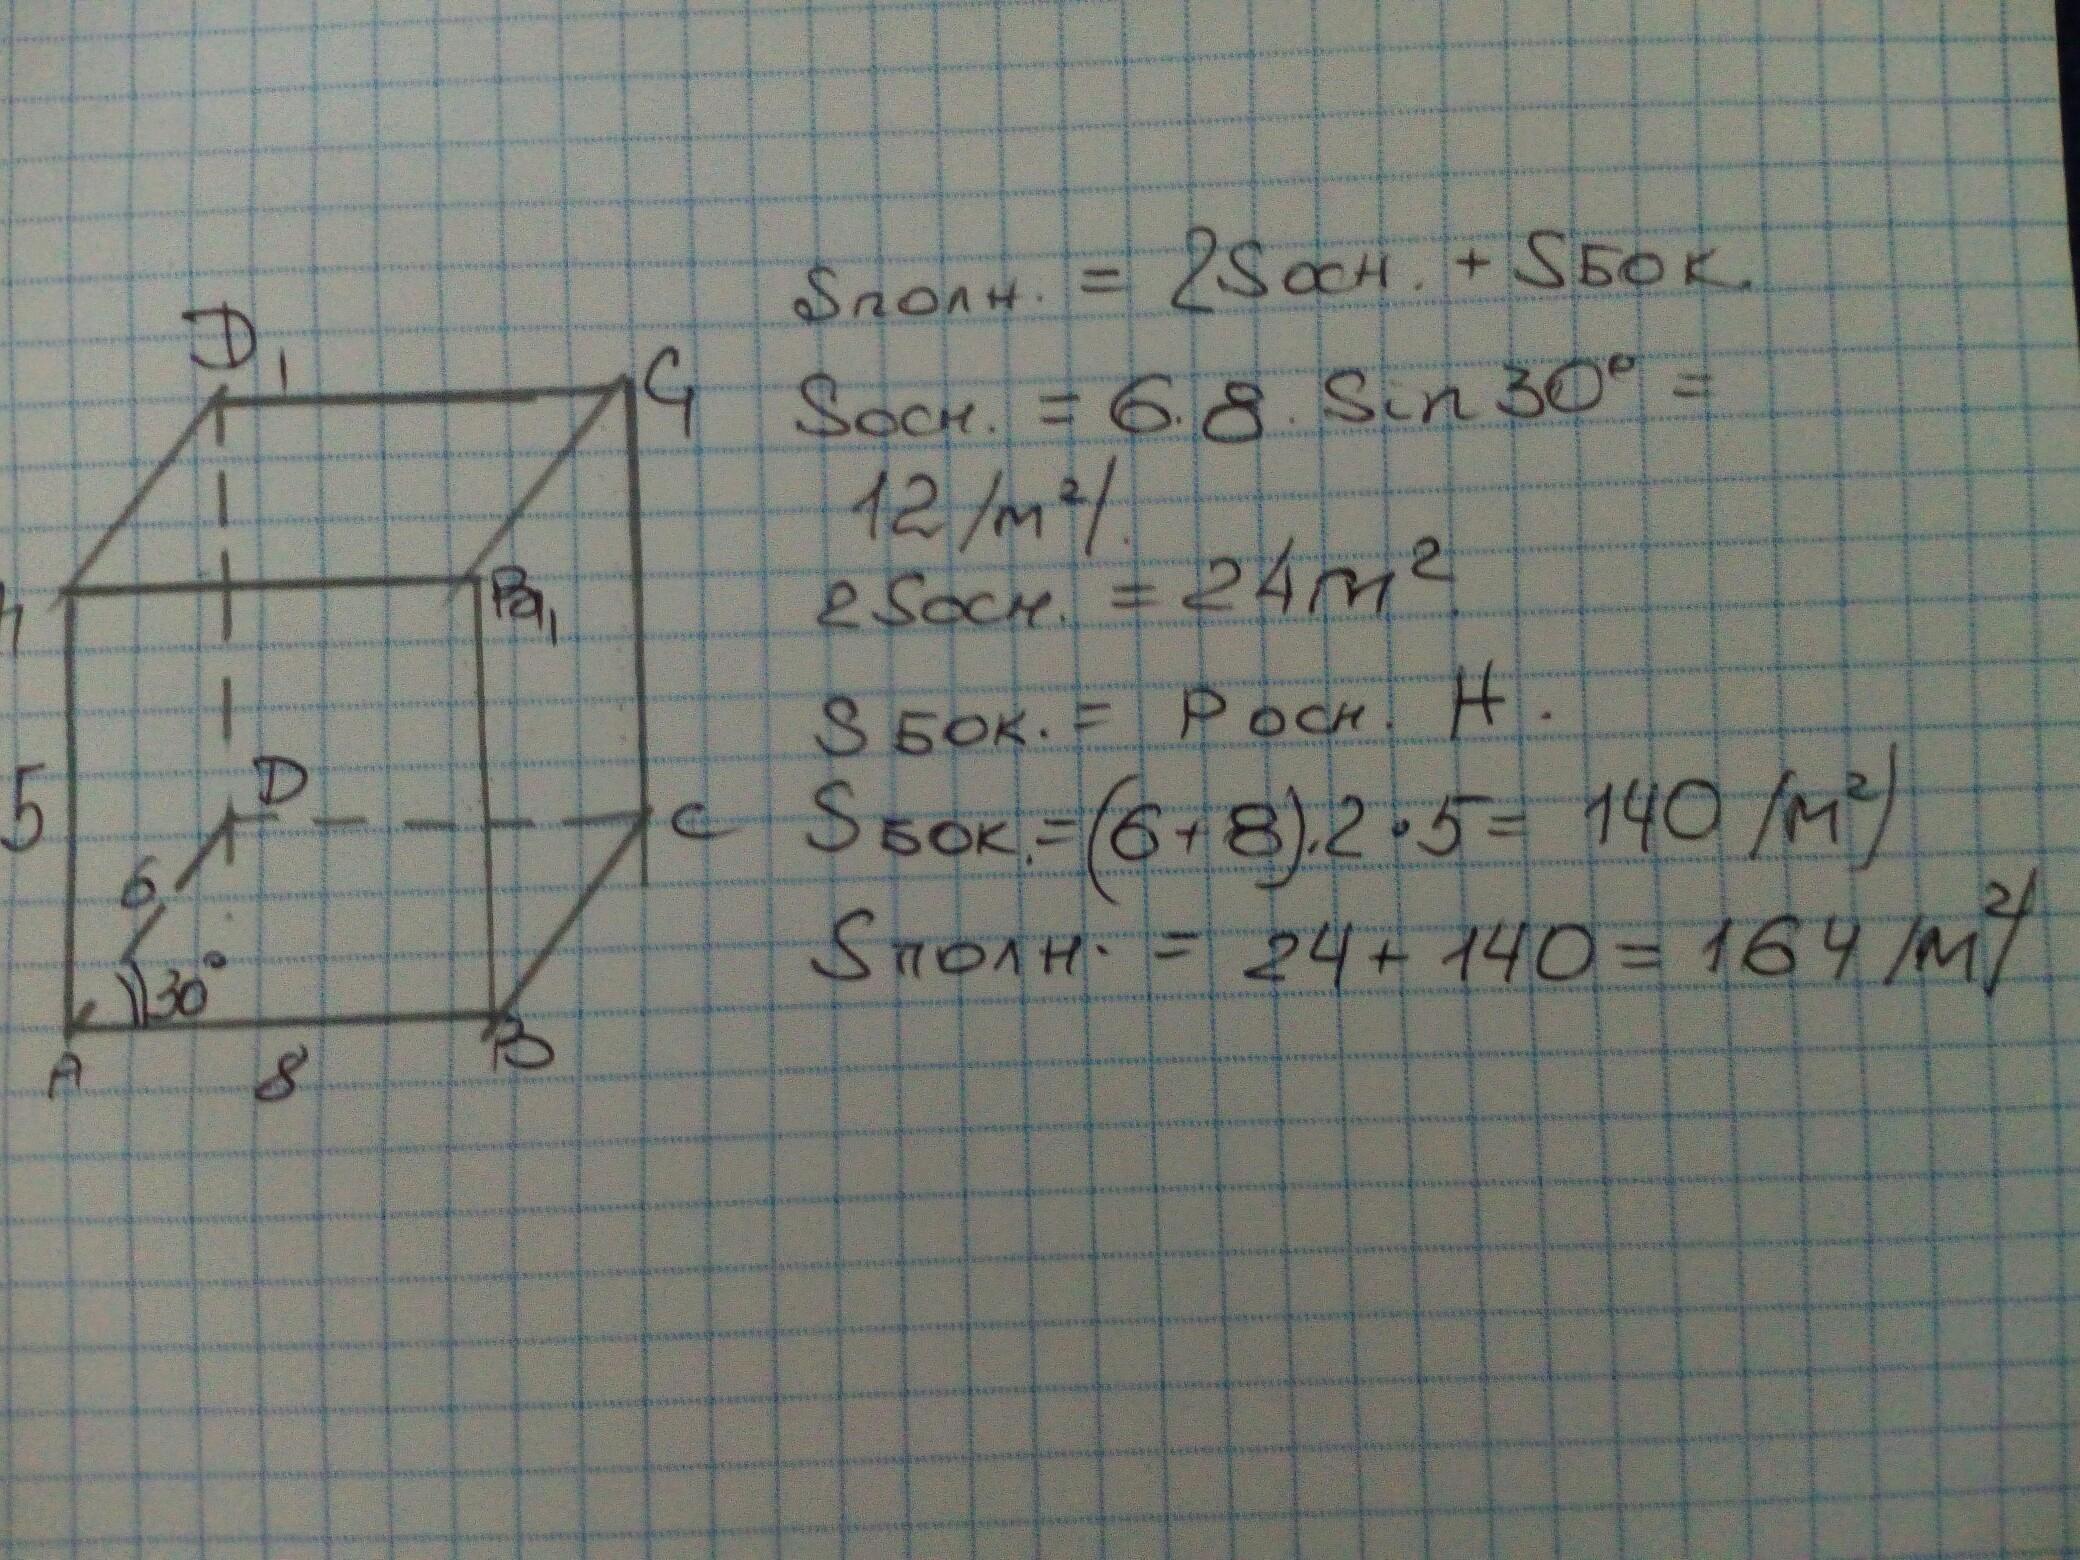 Sполн. = 2Sосн. + Sбок.
Sосн. = 6·8·Sin30° =
12 /м²/.
2Sосн. = 24м²
Sбок. = Pосн. H.
Sбок. = (6+8)·2·5 = 140 /м²/
Sполн. = 24 + 140 = 164 /м²/
D₁
C₁
B₁
5
D
C
6
30°
A
8
B